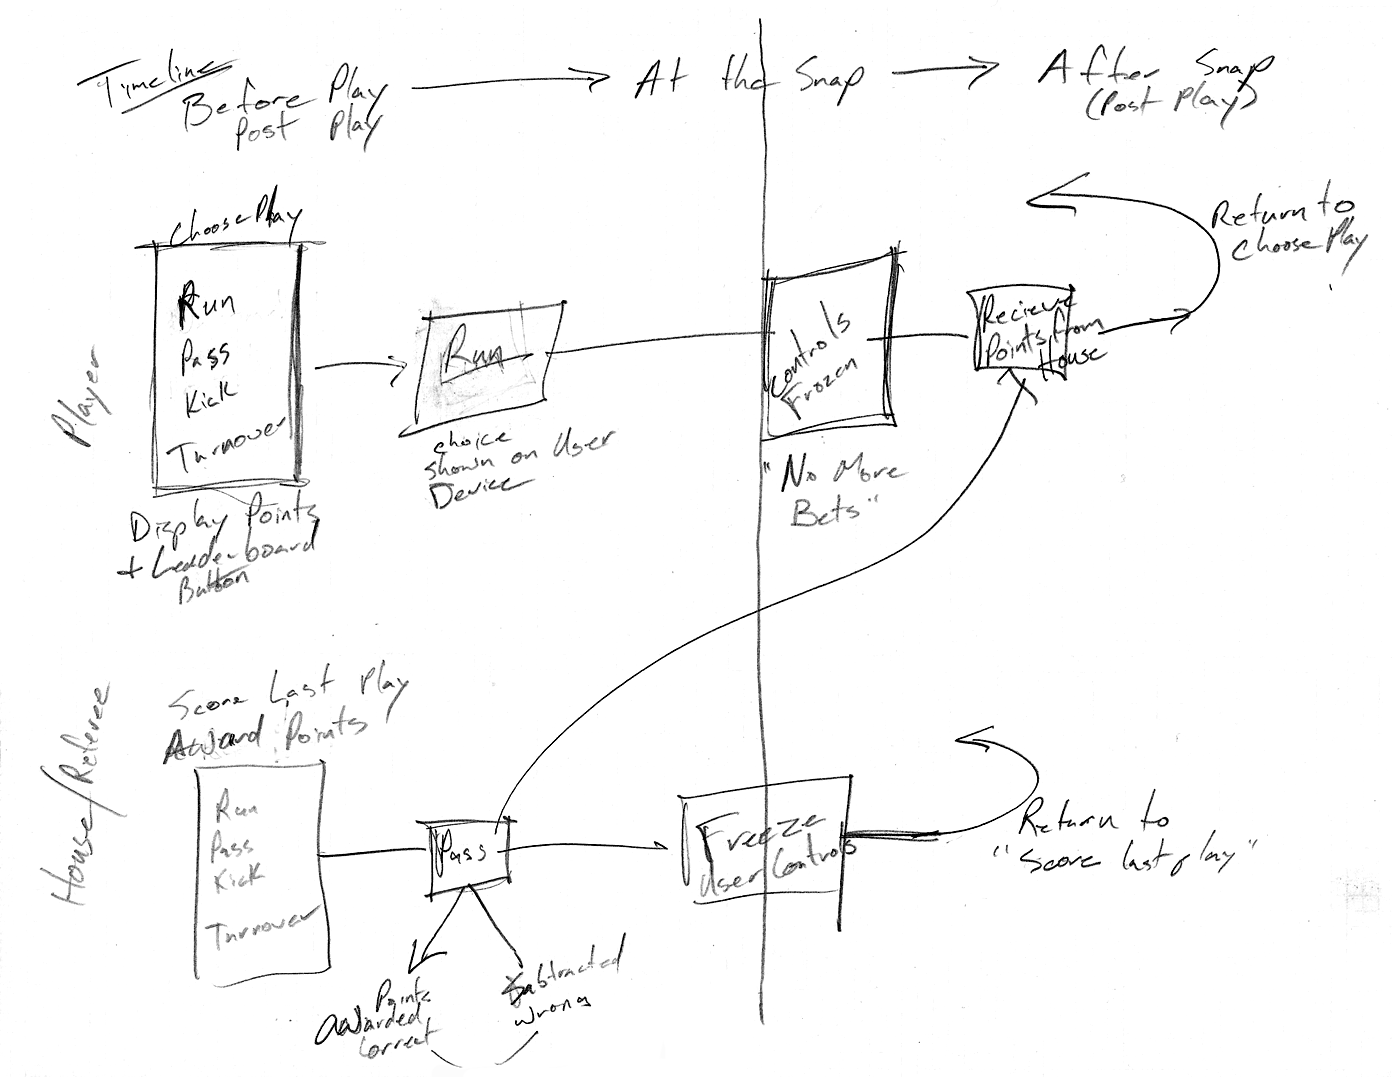 Timeline
Before Play
Post Play
At the Snap
After Snap
(Post Play)
Player
Choose Play
Run
Pass
Kick
Turnover
Display Points
+ Leaderboard
Button
Run
choice
shown on User
Device
Controls
Frozen
"No More
Bets"
Recieve
Points from
House
Return to
Choose Play
House/Referee
Score Last Play
Award Points
Run
Pass
Kick
Turnover
Pass
Points
awarded
correct
Subtracted
wrong
Freeze
User Controls
Return to
"Score last play"